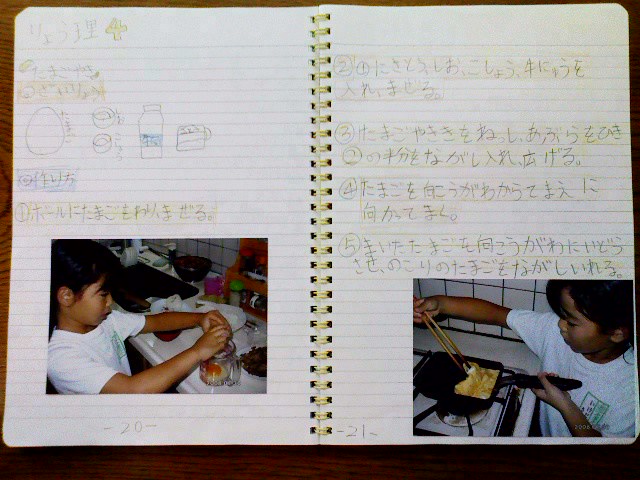 りょう理 4
たまごやき
ざいりょう
たまご
しお
こしょう
牛にゅう
◎作り方
①ボールにたまごをわり、まぜる。
-20-
②①にさとう、しお、こしょう、牛にゅうを
入れ、まぜる。
③たまごやききをねっし、あぶらをひき
②の半分をながし入れ、広げる。
④たまごを向こうがわからてまえに
向かってまく。
⑤まいたたまごを向こうがわにいどう
させ、のこりのたまごをながしいれる。
-21-